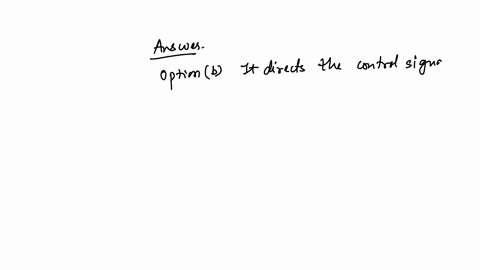 Answer.
Option (b) It directs the control signa